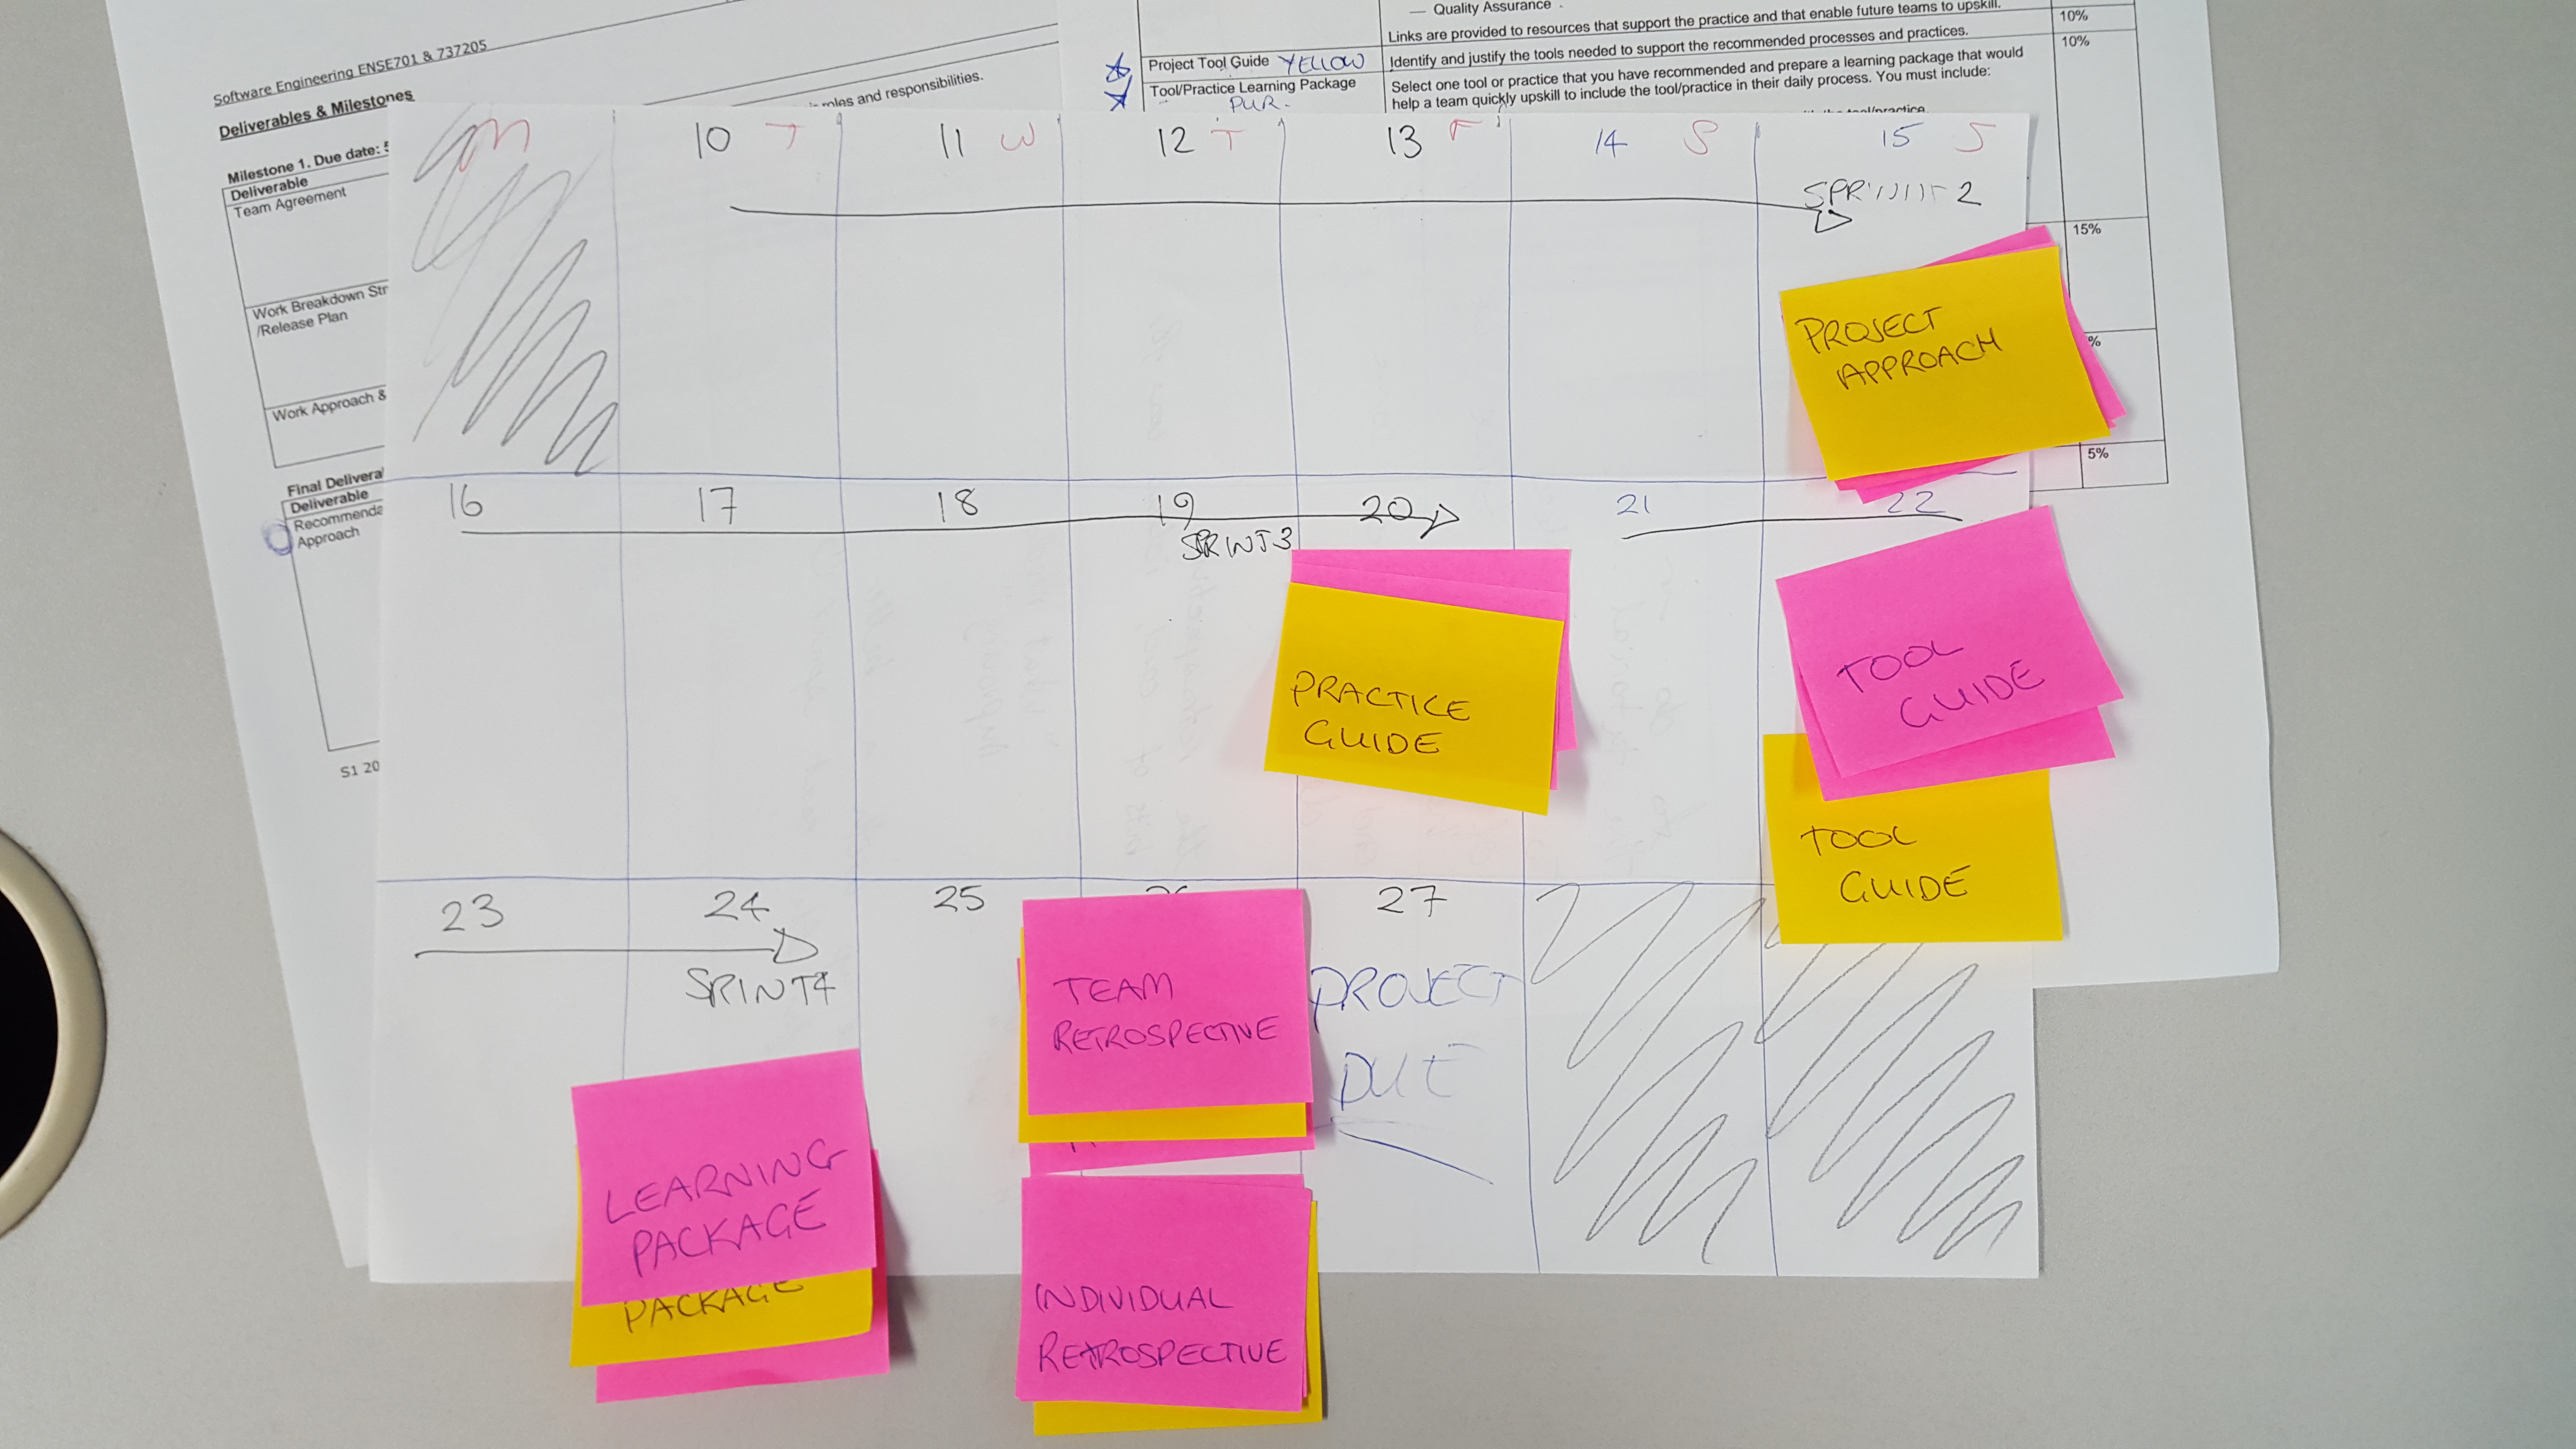 Software Engineering ENSE701 & 737205
Deliverables & Milestones
roles and responsibilities.
Milestone 1. Due date:
Deliverable
Team Agreement
Work Breakdown
/Release Plan
Work Approach &
Final
Deliverable
Approach
S1 20
— Quality Assurance
Links are provided to resources that support the practice and that enable future teams to upskill.
10%
Project Tool Guide YELLOW
Identify and justify the tools needed to support the recommended processes and practices.
10%
Tool/Practice Learning Package
PUR.
Select one tool or practice that you have recommended and prepare a learning package that would
help a team quickly upskill to include the tool/practice in their daily process. You must include:
15%
%
5%
M 10 T 11 W 12 T 13 F 14 S 15 S
SPRINT 2
PROJECT
APPROACH
16 17 18 19 20 21 22
SPRINT 3
PRACTICE
GUIDE
TOOL
GUIDE
TOOL
GUIDE
23 24 25 27
SPRINT 4
TEAM
RETROSPECTIVE
PROJECT
DUE
LEARNING
PACKAGE
PACKAGE
INDIVIDUAL
RETROSPECTIVE